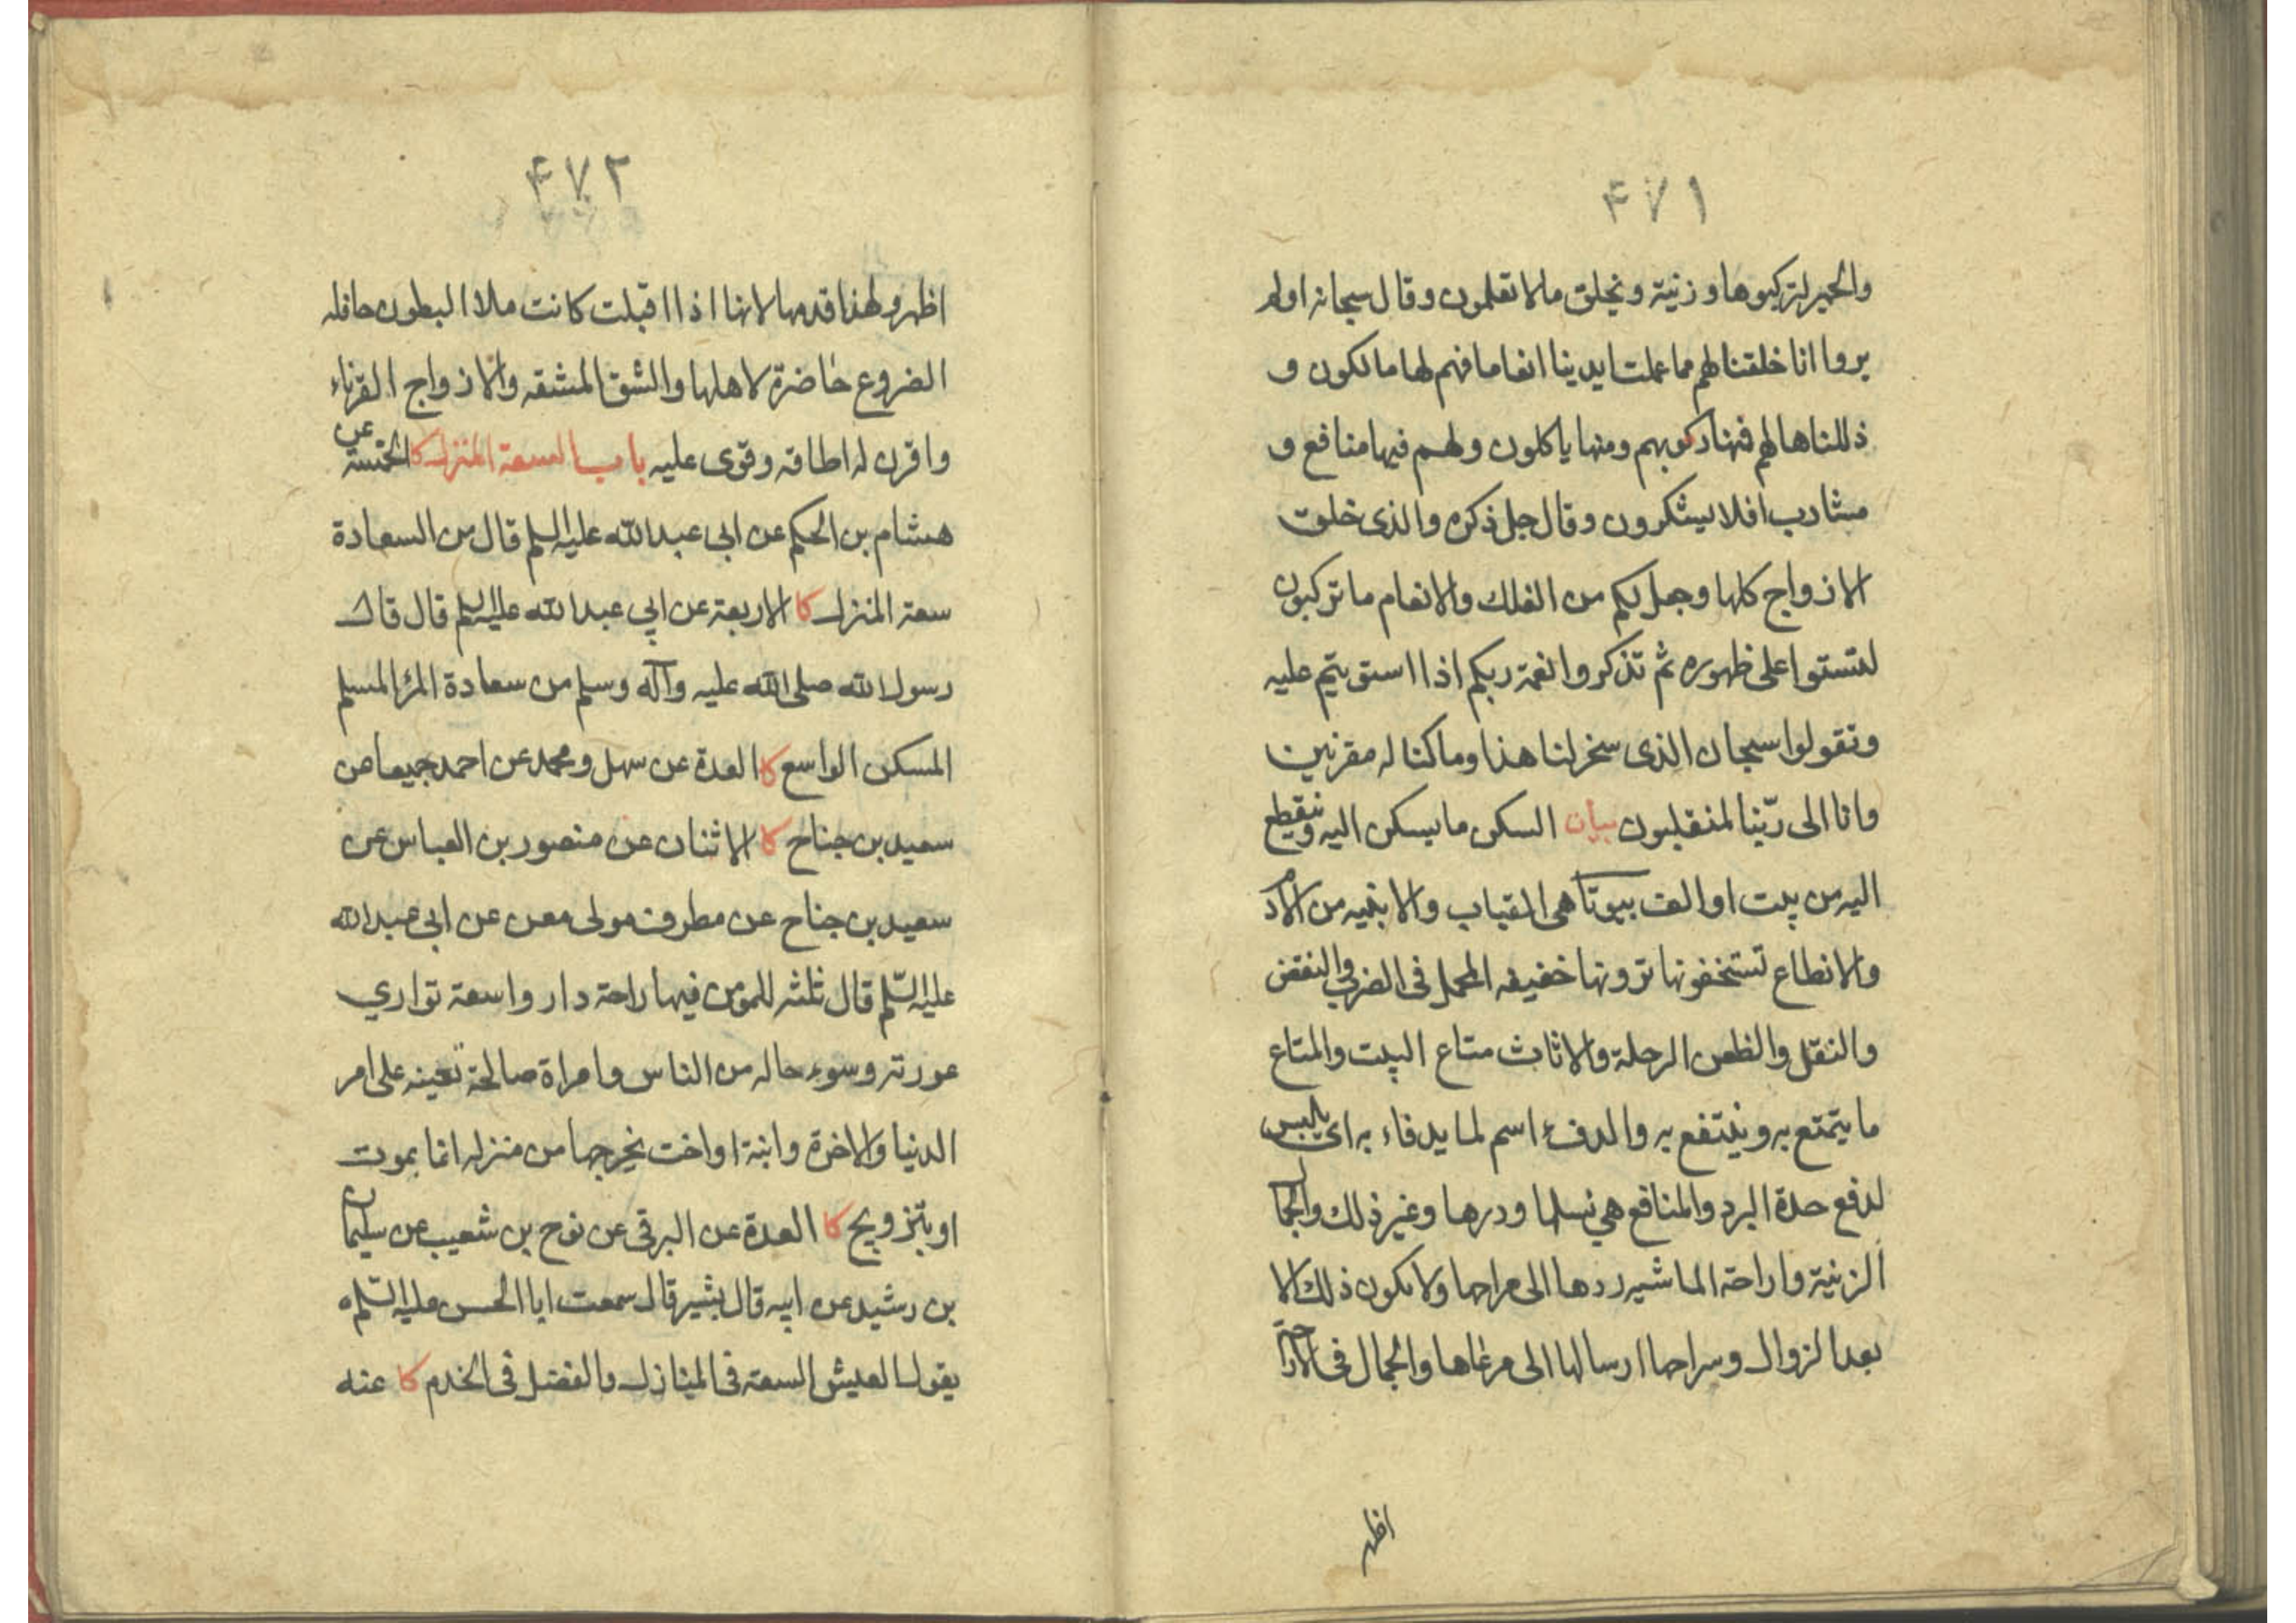 ۴۷۱
والحمير لتركبوها و زينة و يخلق ما لا تعلمون و قال سبحانه اولم
يروا انا خلقنا لهم مما عملت ايدينا انعاما فهم لها مالكون و
ذللناها لهم فمنها ركوبهم ومنها ياكلون ولهم فيها منافع و
مشارب افلا يشكرون و قال جل ذكره والذى خلق
الازواج كلها وجعل لكم من الفلك والانعام ما تركبون
لتستوا على ظهوره ثم تذكروا نعمة ربكم اذا استويتم عليه
وتقولوا سبحان الذى سخر لنا هذا وما كنا له مقرنين
وانا الى ربّنا لمنقلبون بيان السكن ما يسكن اليه وينقطع
اليه من بيت او الف بيوتا هى القباب والابنيه من الادم
والانطاع تستخفونها ترونها خفيفه المحمل فى الضرب والنقض
والنقل والظعن الرحلة والاثاث متاع البيت والمتاع
ما يتمتع به و ينتفع به والدفء اسم لما يدفاء به اى يلبس
لدفع حدة البرد والمنافع هي نسلها ودرها وغير ذلك والجمال
الزنية واراحة الماشيه ردها الى مراحها ولا يكون ذلك الا
بعد الزوال وسراحها ارسالها الى مرعاها والجمال فى الاراحة
اظهر
۴۷۲
اظهر ولهذا قدمها لانها اذا اقبلت كانت ملاا البطون حافله
الضروع حاضرة لاهلها والشق المشقه والازواج القرناء
واقرن له اطاقه وقوى عليه باب السعة المنزل كا الخمسة عن
هشام بن الحكم عن ابى عبدالله عليه السلم قال من السعادة
سعة المنزل كا الاربعة عن ابي عبدالله عليه السلم قال قال
رسول الله صلى الله عليه وآله وسلم من سعادة المرء المسلم
المسكن الواسع كا العدة عن سهل ومحمد عن احمد جميعا عن
سعيد بن جناح كا الاثنان عن منصور بن العباس عن
سعيد بن جناح عن مطرف مولى معن عن ابى عبدالله
عليه السّلم قال ثلثه للمؤمن فيها راحة دار واسعة تواري
عورته وسوء حاله من الناس وامراة صالحة تعينه على امر
الدنيا والاخرة وابنة او اخت يخرجها من منزله اما بموت
او بتزويج كا العدة عن البرقى عن نوح بن شعيب عن سليمان
بن رشيد عن ابيه قال بشير قال سمعت ابا الحسن عليه السّلم
يقول العيش السعة فى المنازل والفضل فى الخدم كا عنه